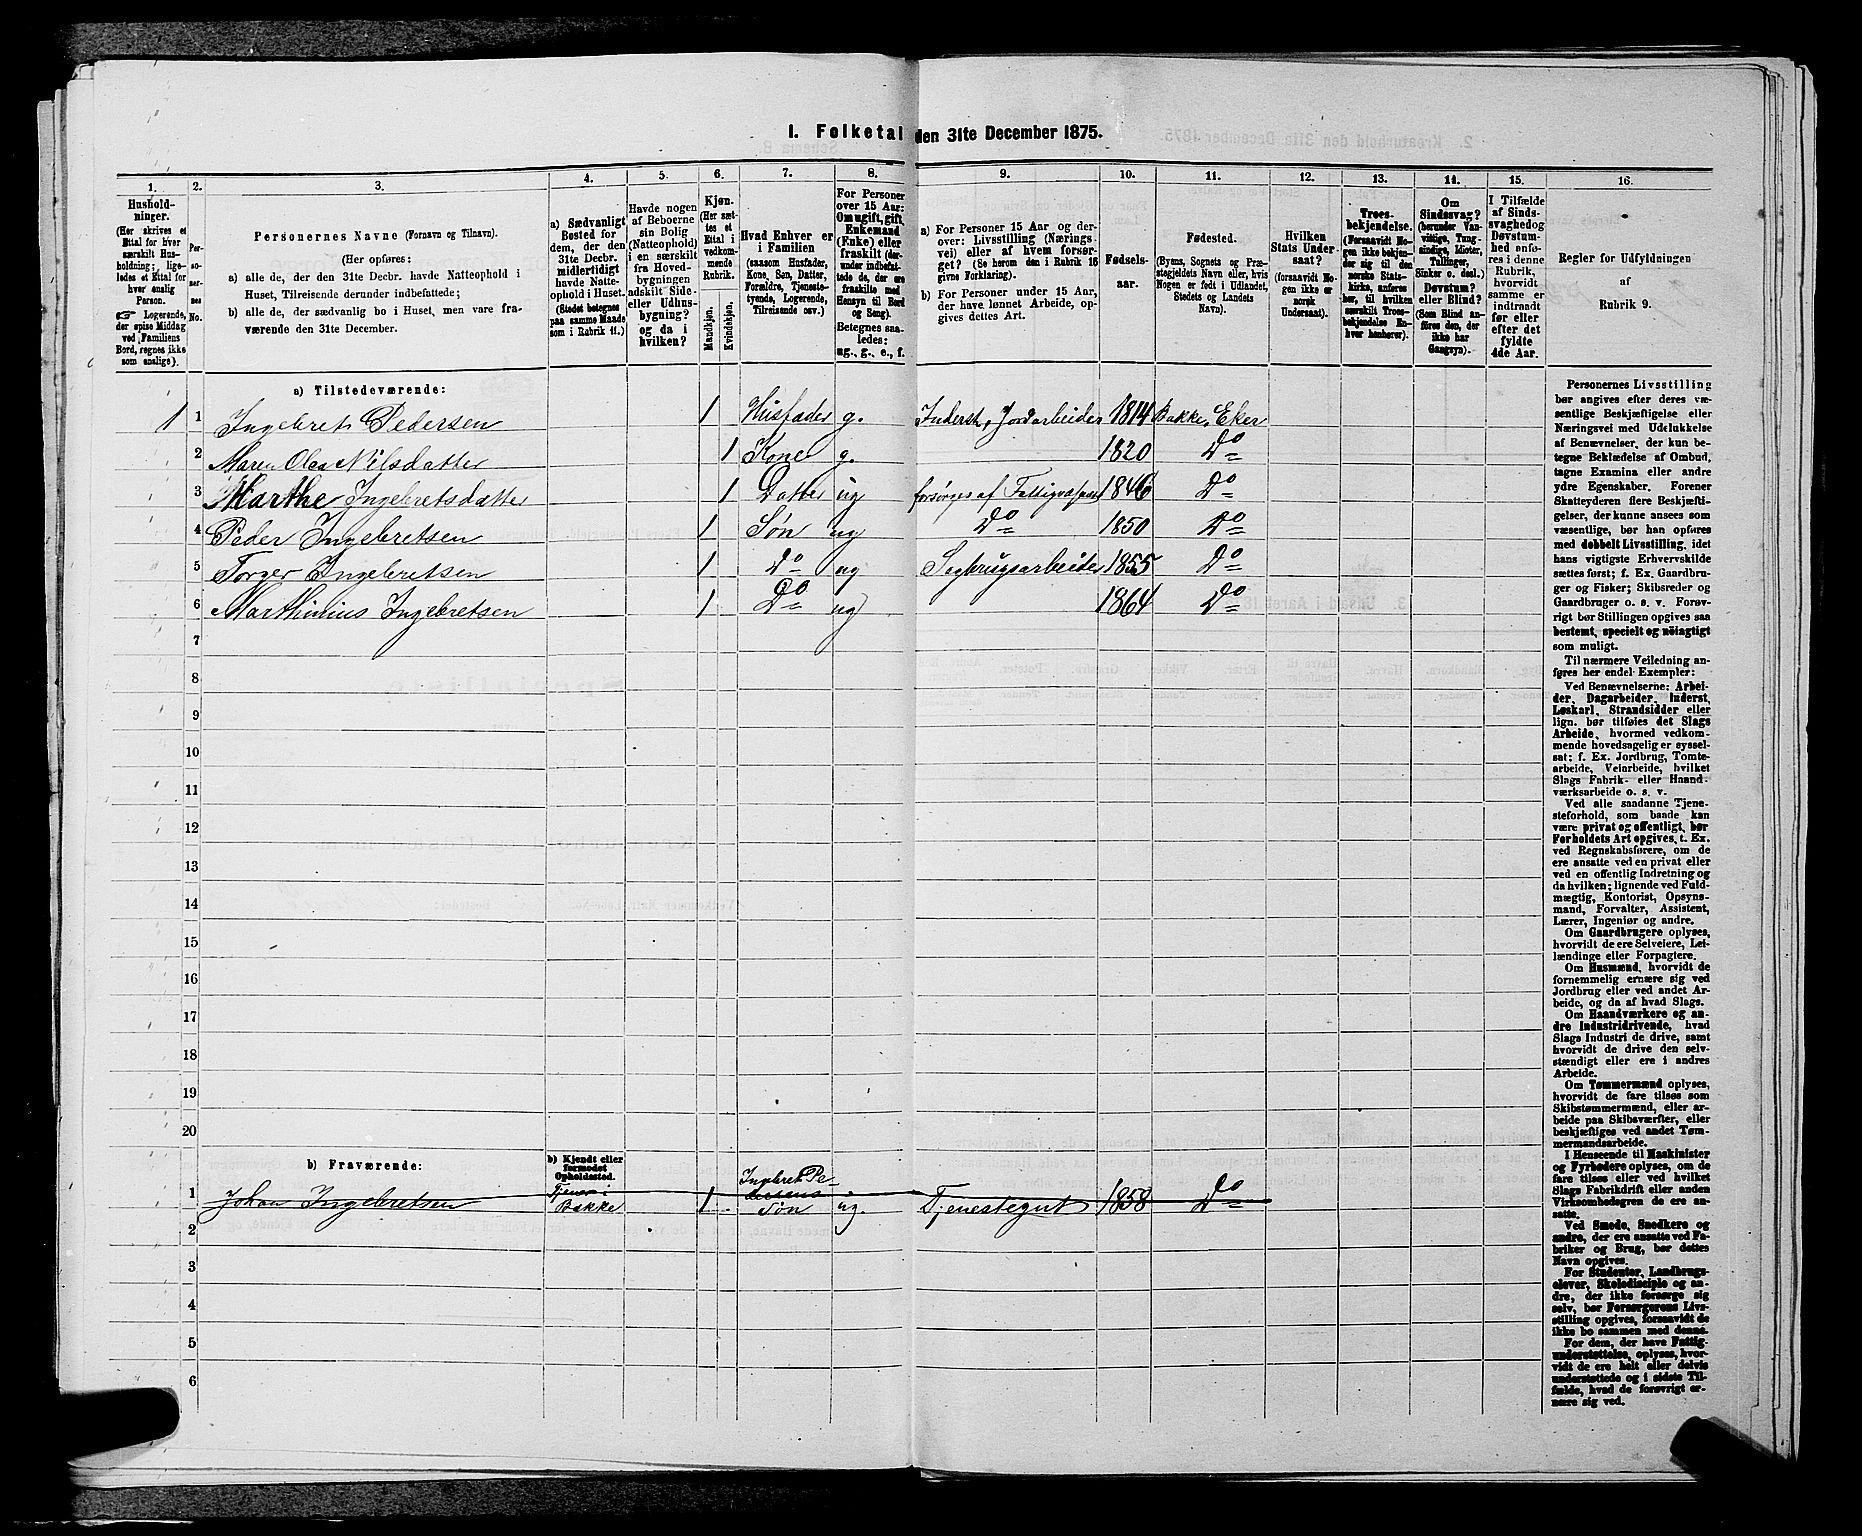 I. Folketal den 31te December 1875.
1. 2. 3. 4. 5. 6. 7. 8. 9. 10. 11. 12. 13. 14. 15. 16.
Hushold-
ninger.
(Her skrives et
Ettal for hver
særskilt Hus-
holdning; lige-
ledes et Ettal for
hver enslig
Person.
☞ Logerende,
der spise Middag
ved Familiens
Bord, regnes ikke
som enslige).
Per-
so-
ner-
nes
No.
Personernes Navne (Fornavn og Tilnavn).
(Her opføres:
a) alle de, der den 31te Decbr. havde Natteophold i
Huset, Tilreisende derunder indbefattede;
b) alle de, der sædvanlig bo i Huset, men vare fra-
værende den 31te December.
a) Sædvanligt
Bosted for
dem, der den
31te Decbr.
midlertidigt
havde Natte-
ophold i Huset.
(Stedet betegnes
paa samme Maade
som i Rubrik 11.)
Havde nogen
af Beboerne
sin Bolig
(Natteophold)
i en særskilt
fra Hoved-
bygningen
adskilt Side-
eller Udhus-
bygning?
og da i
hvilken?
Kjøn.
(Her sæt-
tes et
Ettal i
vedkom-
mende
Rubrik.
Mandkjøn.
Kvindekjøn.
Hvad Enhver er
i Familien
(saasom Husfader,
Kone, Søn, Datter,
Forældre, Tjeneste-
tyende, Logerende,
Tilreisende osv.)
For Personer
over 15 Aar:
Om ugift, gift,
Enkemand
(Enke) eller
fraskilt (der-
under indbefat-
tede de, der ere
fraskilte med
Hensyn til Bord
og Seng).
Betegnes saa-
ledes:
ug., g., e., f.
a) For Personer 15 Aar og der-
over: Livsstilling (Nærings-
vei) eller af hvem forsør-
get? (Se herom den i Rubrik 16
givne Forklaring).
b) For Personer under 15 Aar,
der have lønnet Arbeide, op-
gives dettes Art.
Fødsels-
aar.
Fødested.
(Byens, Sognets og Præ-
stegjeldets Navn, eller, hvis
Nogen er født i Udlandet,
Stedets og Landets
Navn).
Hvilken
Stats Under-
saat?
(forsaavidt No-
gen ikke er
norsk
Undersaat).
Troes-
bekjendelse.
(Forsaavidt No-
gen ikke bekjen-
der sig til den
norske Stats-
kirke, anføres
her, til hvilken
særskilt Troes-
bekjendelse En-
hver henhører).
Om
Sindssvag?
(herunder Van-
vittige, Tung-
sindige, Idioter,
Tullinger,
Sinker o. desl.)
Døvstum?
eller Blind?
(Som Blind an-
føres den, der
ikke har
Gangsyn).
I Tilfælde
af Sinds-
svaghed og
Døvstum-
hed anfø-
res i denne
Rubrik,
hvorvidt
samme er
indtraadt
før eller
efter det
fyldte
4de Aar.
Regler for Udfyldningen
af
Rubrik 9.
a) Tilstedeværende:
1 1 Ingebret Pedersen 1 Husfader g. Inderst, Jordarbeider 1814 Bakke, Eker
2 Maren Olea Nilsdatter 1 Kone g. 1820 Do
3 Marthe Ingebretsdatter 1 Datter ug forsørges af Fattigvæsenet 1846 Do
4 Peder Ingebretsen 1 Søn ug Do 1850 Do
5 Torger Ingebretsen 1 Do ug Sagbrugsarbeider 1855 Do
6 Marthinius Ingebretsen 1 Do ug 1864 Do
7
8
9
10
11
12
13
14
15
16
17
18
19
20
b) Fraværende:
b) Kjendt eller
formodet
Opholdssted.
1 Johan Ingebretsen Tjener i Bakke 1 Ingebret Pedersens Søn ug. Tjenestegut 1858 Do
2
3
4
5
6
Personernes Livsstilling
bør angives efter deres væ-
sentlige Beskjæftigelse eller
Næringsvei med Udelukkelse
af Benævnelser, der kun be-
tegne Beklædelse af Ombud,
tagne Examina eller andre
ydre Egenskaber. Forener
Skatteyderen flere Beskjæfti-
gelser, der kunne ansees som
væsentlige, bør han opføres
med dobbelt Livsstilling, idet
hans vigtigste Erhvervskilde
sættes først; f. Ex. Gaardbru-
ger og Fisker; Skibsreder og
Gaardbruger o. s. v. Forøv-
rigt bør Stillingen opgives saa
bestemt, specielt og nøiagtigt
som muligt.
Til nærmere Veiledning an-
føres her endel Exempler:
Ved Benævnelserne: Arbei-
der, Dagarbeider, Inderst,
Løskarl, Strandsidder eller
lign. bør tilføies det Slags
Arbeide, hvormed vedkom-
mende hovedsagelig er syssel-
sat; f. Ex. Jordbrug, Tomte-
arbeide, Veiarbeide, hvilket
Slags Fabrik- eller Haand-
værksarbeide o. s. v.
Ved alle saadanne Tjene-
steforhold, som baade kan
være privat og offentligt, bør
Forholdets Art opgives, t. Ex.
ved Regnskabsførere, om de
ere ansatte ved en privat eller
ved en offentlig Indretning og
da hvilken; lignende ved Fuld-
mægtig, Kontorist, Opsyns-
mand, Forvalter, Assistent,
Lærer, Ingeniør og andre.
Om Gaardbrugere oplyses,
hvorvidt de ere Selveiere, Lei-
lændinge eller Forpagtere.
Om Husmænd, hvorvidt de
fornemmelig ernære sig ved
Jordbrug eller ved andet Ar-
beide, og da af hvad Slags.
Om Haandværkere og an-
dre Industridrivende, hvad
Slags Industri de drive, samt
hvorvidt de drive den selv-
stændigt eller ere i andres
Arbeide.
Om Tømmermænd oplyses,
hvorvidt de fare tilsøs som
Skibstømmermænd, eller ar-
beide paa Skibsværfter, eller
beskjæftiges ved andet Tøm-
mermandsarbeide.
I Henseende til Maskinister
og Fyrbødere oplyses, om de
fare tilsøs eller ved hvilket
Slags Fabrikdrift eller anden
Virksomhedsgren de ere an-
satte.
Ved Smede, Snedkere og
andre, der ere ansatte ved Fa-
briker og Brug, bør dettes
Navn opgives.
For Studenter, Landbrugs-
elever, Skoledisciple og an-
dre, der ikke forsørge sig
selv, bør Forsørgerens Livs-
stilling opgives, forsaavidt de
ikke bo sammen med denne.
For dem, der have Fattig-
understøttelse, oplyses, hvor-
vidt de ere helt eller delvis
understøttede og i sidste Til-
fælde, hvad de forøvrigt er-
nære sig ved.